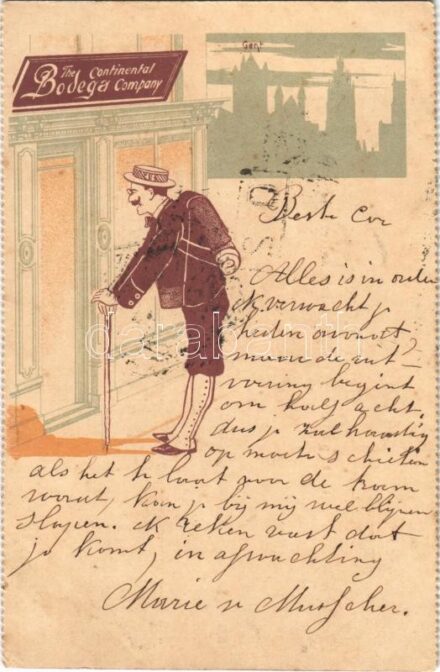 The Continental
Bodega Company
Gent
Beste Cor
Alles is in orde
ik verwacht je
heden avond
maar de uit-
voering begint
om half acht,
dus je zal haastig
op moeten schieten
als het te laat voor de tram
wordt, kan je bij mij wel blijven
slapen. ik reken vast dat
je komt, in afwachting
Marie v Musscher.
darabanth